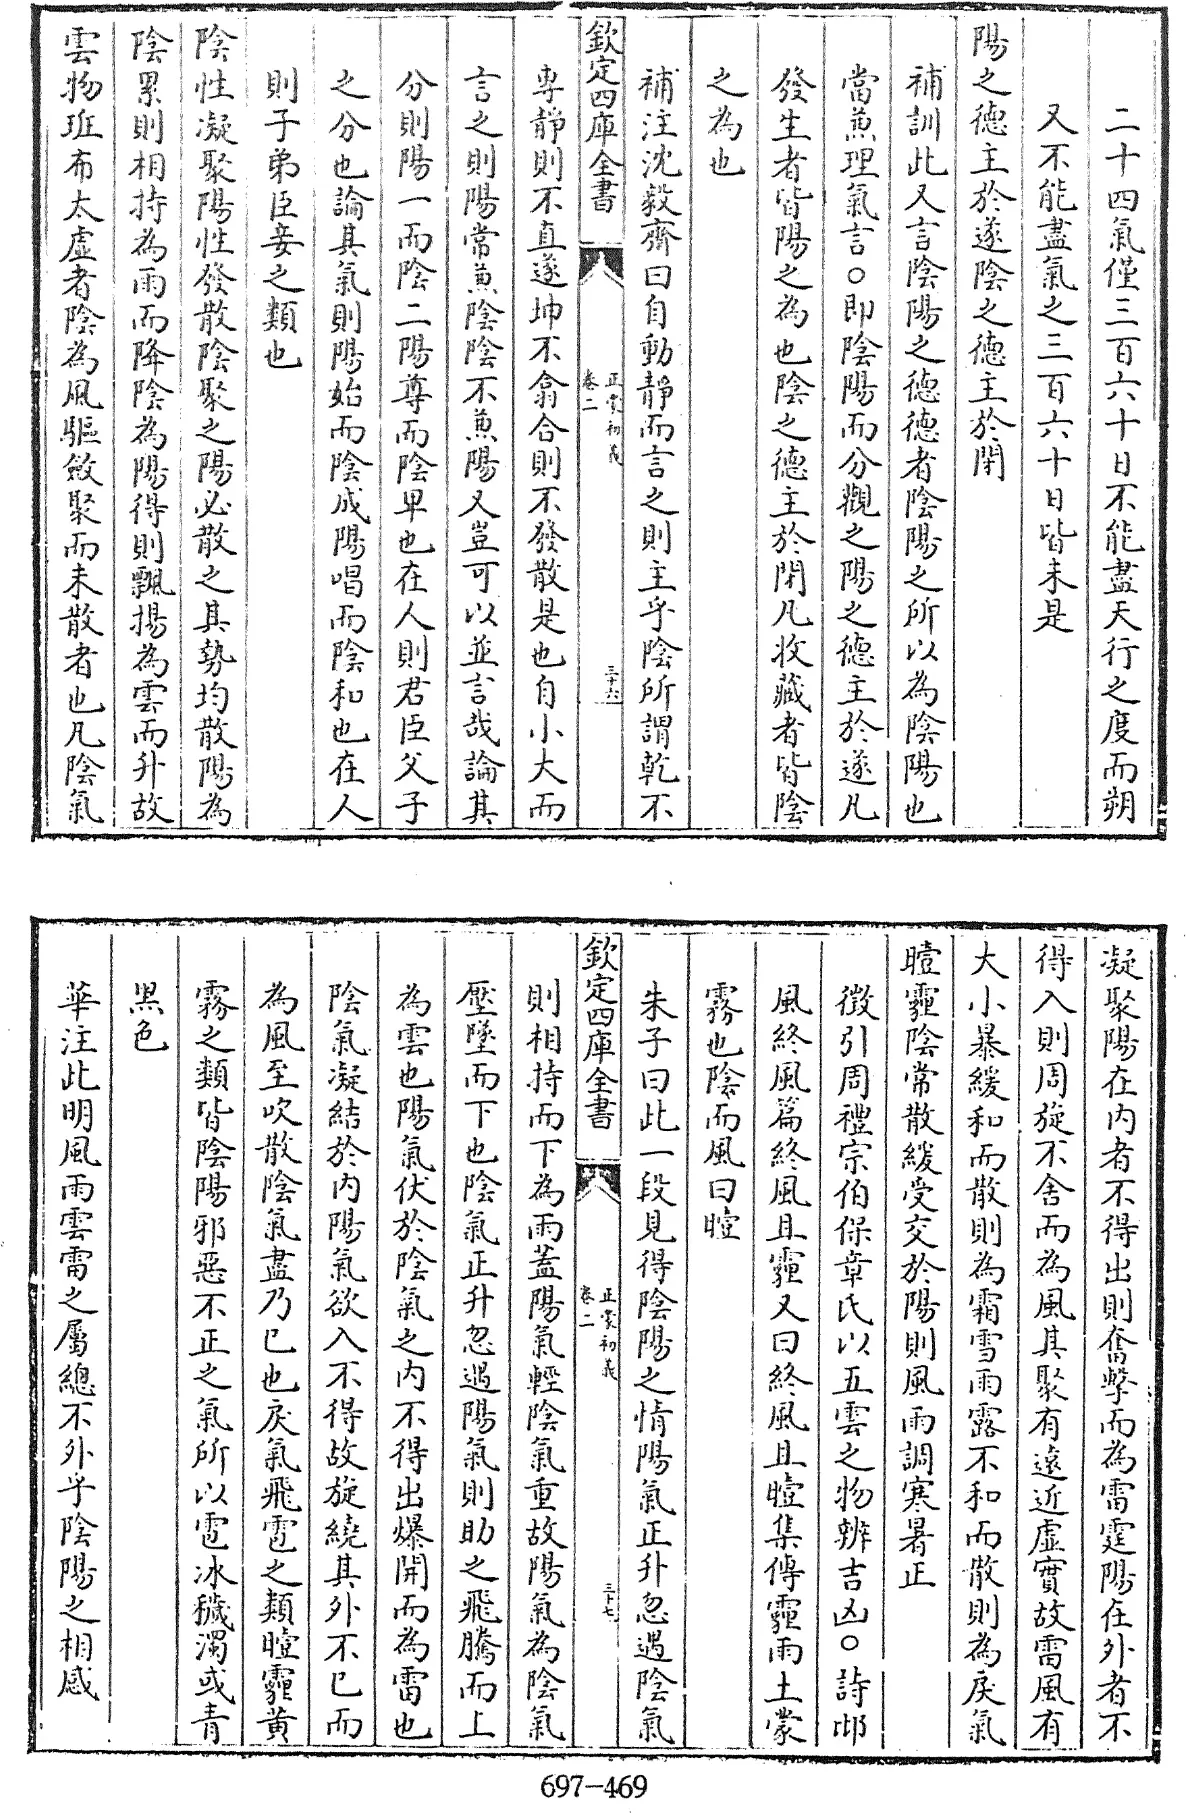 二十四氣僅三百六十日不能盡天行之度而朔
又不能盡氣之三百六十日皆未是
陽之德主於遂陰之德主於閉
補訓此又言陰陽之德德者陰陽之所以為陰陽也
當兼理氣言○即陰陽而分觀之陽之德主於遂凡
發生者皆陽之為也陰之德主於閉凡收藏者皆陰
之為也
補注沈毅齋曰自動靜而言之則主乎陰所謂乾不
欽定四庫全書
正蒙初義
卷二
三十六
專靜則不直遂坤不翕合則不發散是也自小大而
言之則陽常兼陰陰不兼陽又豈可以並言哉論其
分則陽一而陰二陽尊而陰卑也在人則君臣父子
之分也論其氣則陽始而陰成陽唱而陰和也在人
則子弟臣妾之類也
陰性凝聚陽性發散陰聚之陽必散之其勢均散陽為
陰累則相持為雨而降陰為陽得則飄揚為雲而升故
雲物班布太虛者陰為風驅斂聚而未散者也凡陰氣
凝聚陽在內者不得出則奮擊而為雷霆陽在外者不
得入則周旋不舍而為風其聚有遠近虛實故雷風有
大小暴緩和而散則為霜雪雨露不和而散則為戾氣
曀霾陰常散緩受交於陽則風雨調寒暑正
徵引周禮宗伯保章氏以五雲之物辨吉凶○詩邶
風終風篇終風且霾又曰終風且曀集傳霾雨土蒙
霧也陰而風曰曀
朱子曰此一段見得陰陽之情陽氣正升忽遇陰氣
欽定四庫全書
正蒙初義
卷二
三十七
則相持而下為雨蓋陽氣輕陰氣重故陽氣為陰氣
壓墜而下也陰氣正升忽遇陽氣則助之飛騰而上
為雲也陽氣伏於陰氣之內不得出爆開而為雷也
陰氣凝結於內陽氣欲入不得故旋繞其外不已而
為風至吹散陰氣盡乃已也戾氣飛雹之類曀霾黃
霧之類皆陰陽邪惡不正之氣所以雹冰穢濁或青
黑色
華注此明風雨雲雷之屬總不外乎陰陽之相感
697-469